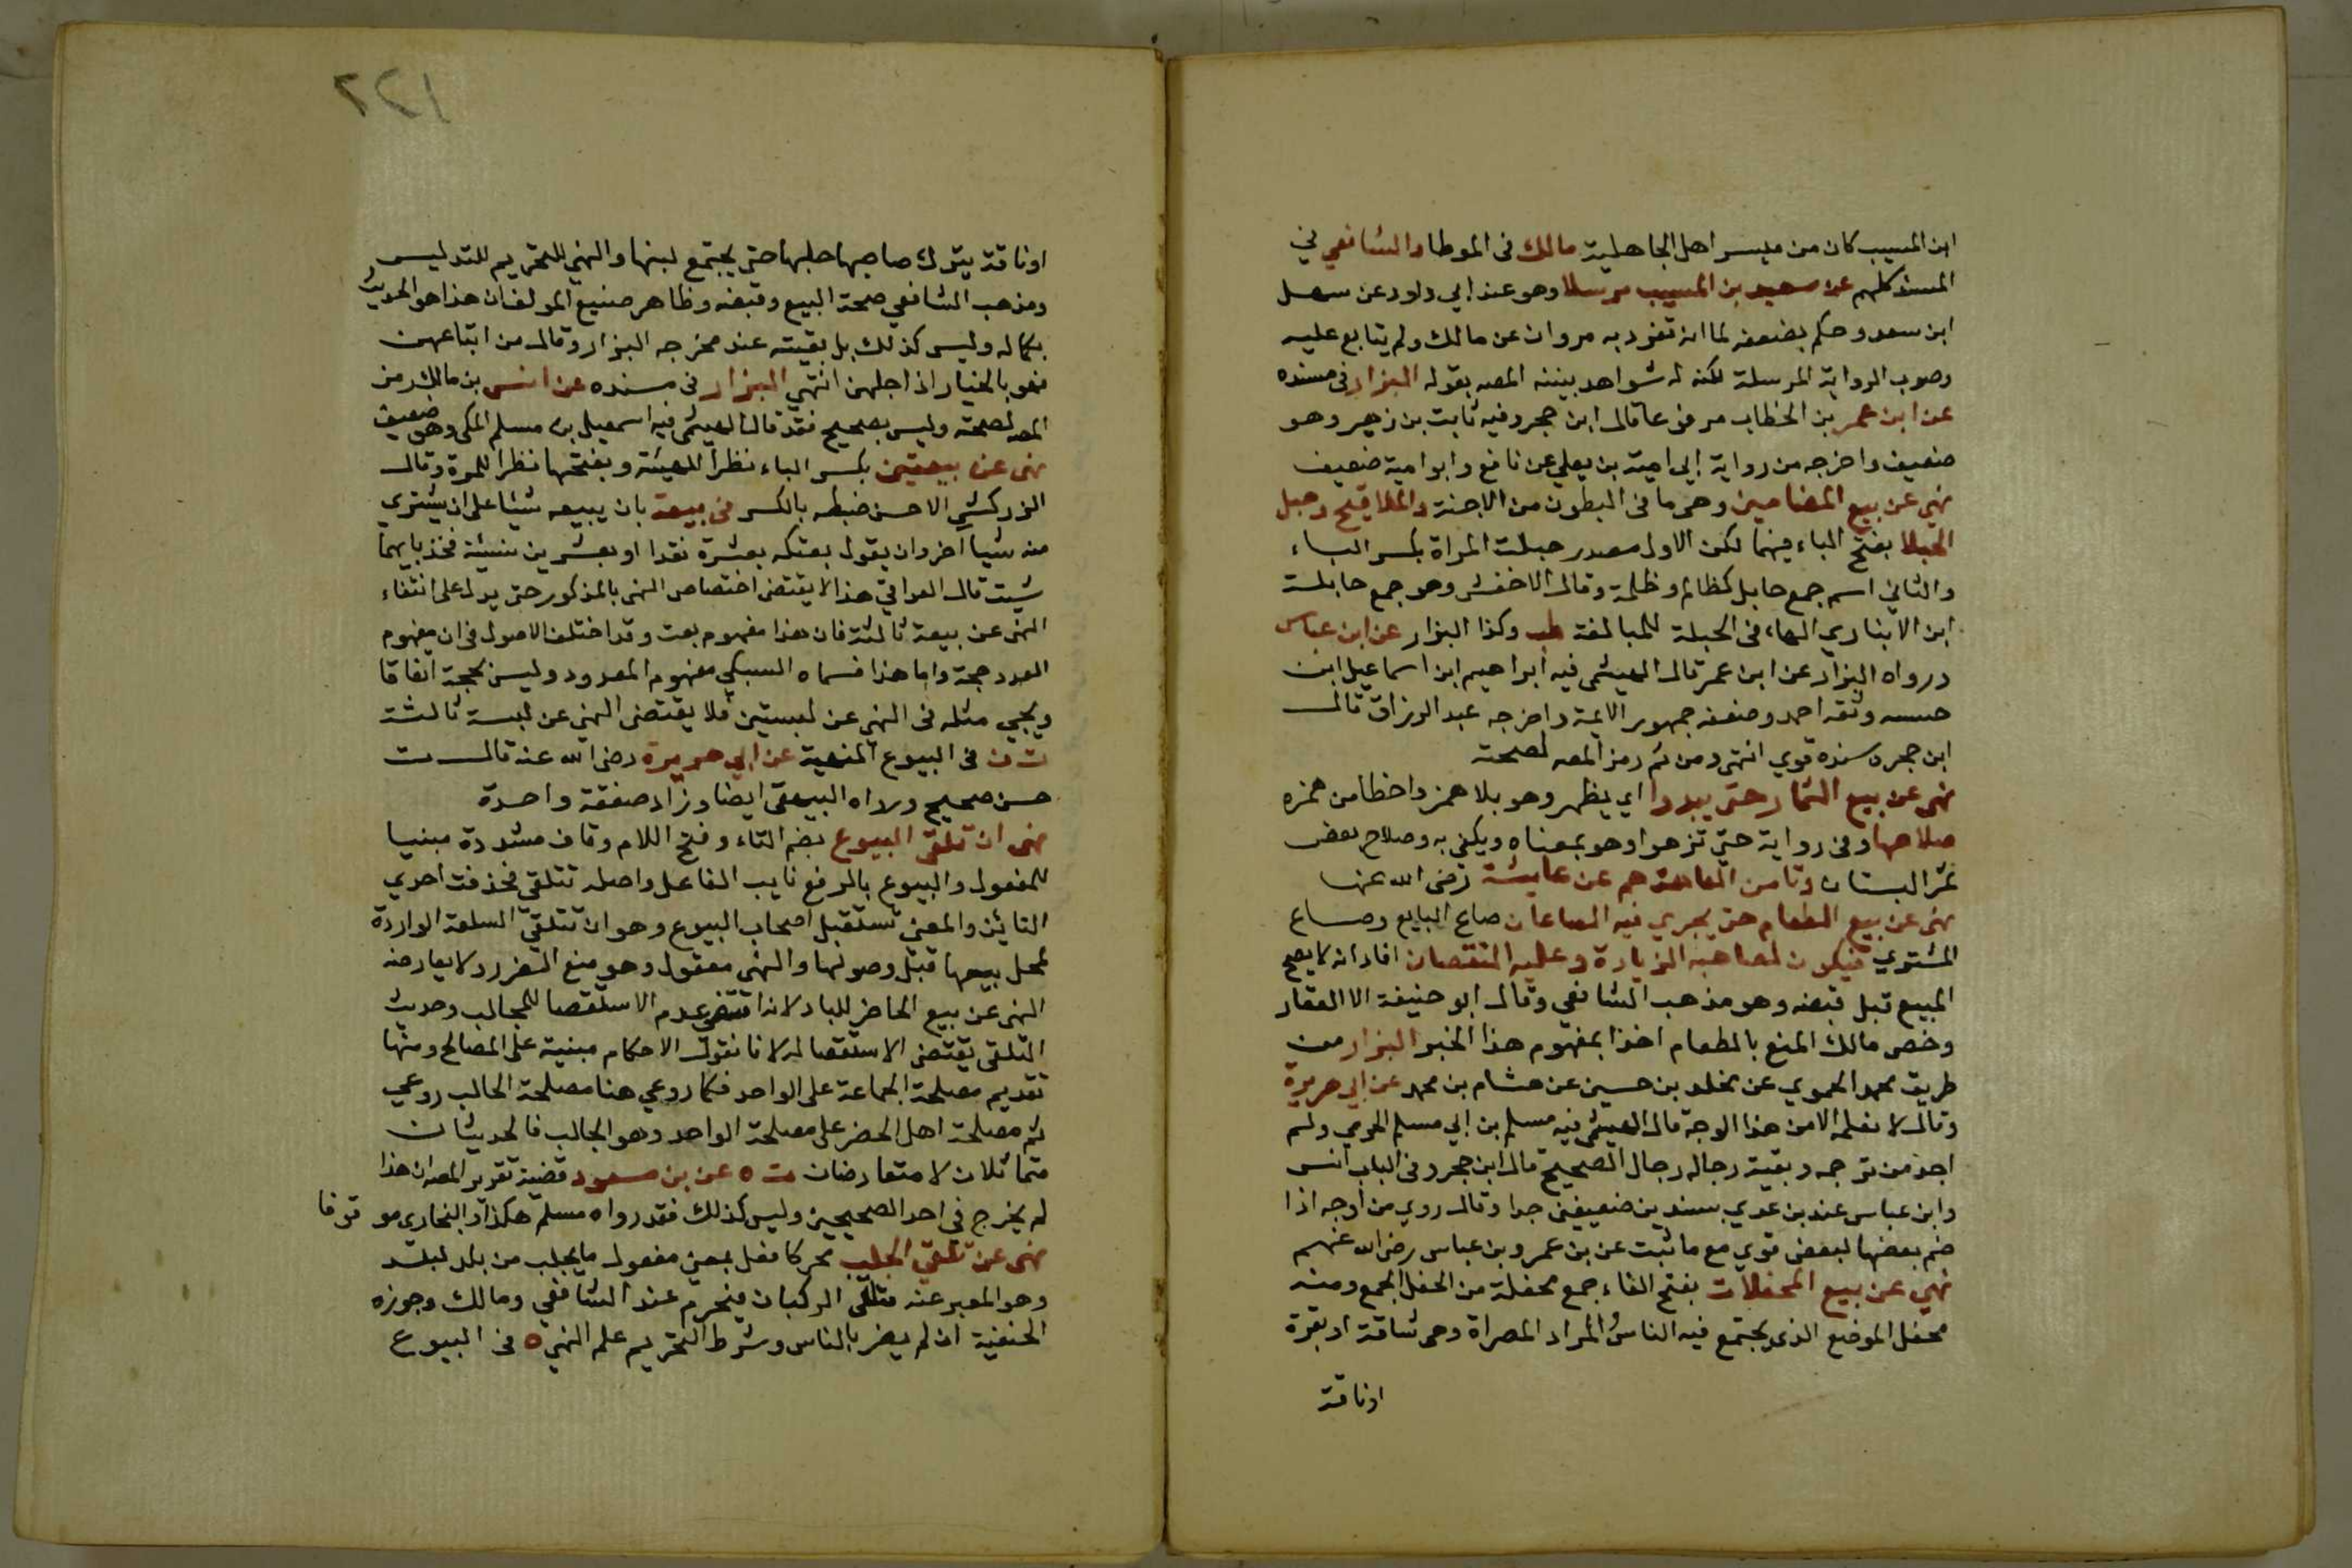 ابن المسيب كان من ميسر اهل الجاهلية مالك فى الموطا والشافعي في
المسند كلهم عن سعيد بن المسيب مرسلا وهو عند ابي داود عن سهل
ابن سعد وحكم بضعفه لما انه تفرد به مروان عن مالك ولم يتابع عليه
وصوب الرواية المرسلة لكنه له شواهد بينه المصه بقوله البزار فى مسنده
عن ابن عمر بن الخطاب مرفوعا قال ابن حجر وفيه ثابت بن زهير وهو
ضعيف واخرجه من رواية ابي امية بن يعلي عن نافع وابو امية ضعيف
نهي عن بيع المضامين وهو ما فى البطون من الاجنة والملاقيح وحبل
الحبلا بفتح الباء فيهما لكن الاول مصدر حبلت المراة بكسر الباء
والثاني اسم جمع حابل كظالم وظلمة وقال الاخفش وهو جمع حابلة
ابن الانباري الهاء فى الحبلة للمبالغة طب وكذا البزار عن ابن عباس
ورواه البزار عن ابن عمر قال الهيثمى فيه ابراهيم ابن اسماعيل ابن
حبيبه وثقه احمد وضعفه جمهور الايمة واخرجه عبد الرزاق قال
ابن حجر وسنده قوي انتهى ومن ثم رمز المصه لصحته
نهى عن بيع الثمار حتى يبدوا اي يظهر وهو بلا همز واخطا من همزه
صلاحها وفى رواية حتي تزهوا وهو بمعناه ويكفي به وصلاح بعض
ثمر البستان وتامن العاهة حم عن عايشة رضى الله عنها
نهى عن بيع الطعام حتى يجري فيه الصاعان صاع البايع وصاع
المشتوي فيكون لصاحبه الزيادة وعليه النقصان افاد انه لا يصح
المبيع قبل قبضه وهو مذهب الشافعي وقال ابو حنيفة الا العقار
وخص مالك المنع بالطعام اخذا بمفهوم هذا الخبر البزار من
طريق محمد الحموي عن مخلد بن حسين عن هشام بن محمد عن ابي هريرة
وقال لا نعلمه الا من هذا الوجه قال الهيثمى فيه مسلم بن ابي مسلم الجرمي ولم
اجد من ترجمه وبقية رجاله رجال الصحيح قال ابن حجر وفى الباب انس
وابن عباس عند بن عدي بسندين ضعيفين جدا وقال روي من اوجه اذا
ضم بعضها لبعض قوي مع ما ثبت عن بن عمر وبن عباس رضى الله عنهم
نهي عن بيع المحفلات بفتح الفاء جمع محفلة من الحفل الجمع ومنه
محفل الموضع الذى يجتمع فيه الناس المراد المصراة وهى شاة او بقرة
اوناقة
٢٢١
اوناقة يترك صاحبها حلبها حتى يجتمع لبنها والنهي للتحريم للتدليس
ومذهب الشافعي صحة البيع وقبضه وظاهر صنيع المولف ان هذا هو الحديث
بكماله وليس كذلك بل بقيته عند مخرجه البزار وقال من ابتاعهن
فهو بالخيار اذا حلبهن انتهي البزار فى مسنده عن انس بن مالك رمز
المصه لصحته وليس بصحيح فقد قال الهيثمى فيه اسمعيل بن مسلم المكى وهو ضعيف
نهى عن بيعتين بكسر الباء نظرا للهيئة وبفتحها نظرا للمرة وقال
الزركشي الاحسن ضبطه بالكسر فى بيعة بان يبيعه شيئا على ان يشتري
منه شيا اخر وان يقول بعتكه بعشرة نقدا او بعشرين نسيئة فخذ بايهما
شيت قال العراقي هذا لا يقتضى اختصاص النهى بالمذكور حتى يدل على انتفاء
النهى عن بيعة ثالثة فان هذا مفهوم بعت وقد اختلف الاصول فى ان مفهوم
العدد حجة واما هذا فسماه السبكي مفهوم المعدود وليس بحجة اتفاقا
ويجي مثله فى النهي عن لبستين فلا يقتضى النهي عن لبسة ثالثة
ت ن فى البيوع المنهية عن ابي هريرة رضى الله عنه قال ت
حسن صحيح ورواه البيهقى ايضا وزاد صفقة واحدة
نهى ان تلقى البيوع بضم التاء وفتح اللام وقاف مشددة مبنيا
للمفعول والبيوع بالرفع نايب الفاعل واصله تتلقي فحذفت احدي
التايين والمعني تستقبل اصحاب البيوع وهو ان تتلقي السلعة الواردة
لمحل بيعها قبل وصولها والنهى معقول وهو منع الضرر ولا يعارضه
النهى عن بيع الحاضر للباد لانه اقتضى عدم الاستقصا للجالب وحديث
التلقى يقتضى الاستقصا له لانا نقول الاحكام مبنية على المصالح ومنها
تقديم مصلحة الجماعة على الواحد فكما روعي هنا مصلحة الجالب روعي
ثم مصلحة اهل الحضر على مصلحة الواحد وهو الجالب فالحديثان
متماثلان لا متعارضان ت ه عن بن مسعود قضية تقرير المصه ان هذا
لم يخرج فى احد الصحيحين وليس كذلك فقد رواه مسلم هكذا والبخاري موقوفا
نهى عن تلقي الجلب محركا فعل بمعنى مفعول ما يجلب من بلد لبلد
وهو المعبر عنه بتلقى الركبان فيحرم عند الشافعي ومالك وجوزه
الحنفية ان لم يضر بالناس وشرط التحريم علم النهي ه فى البيوع